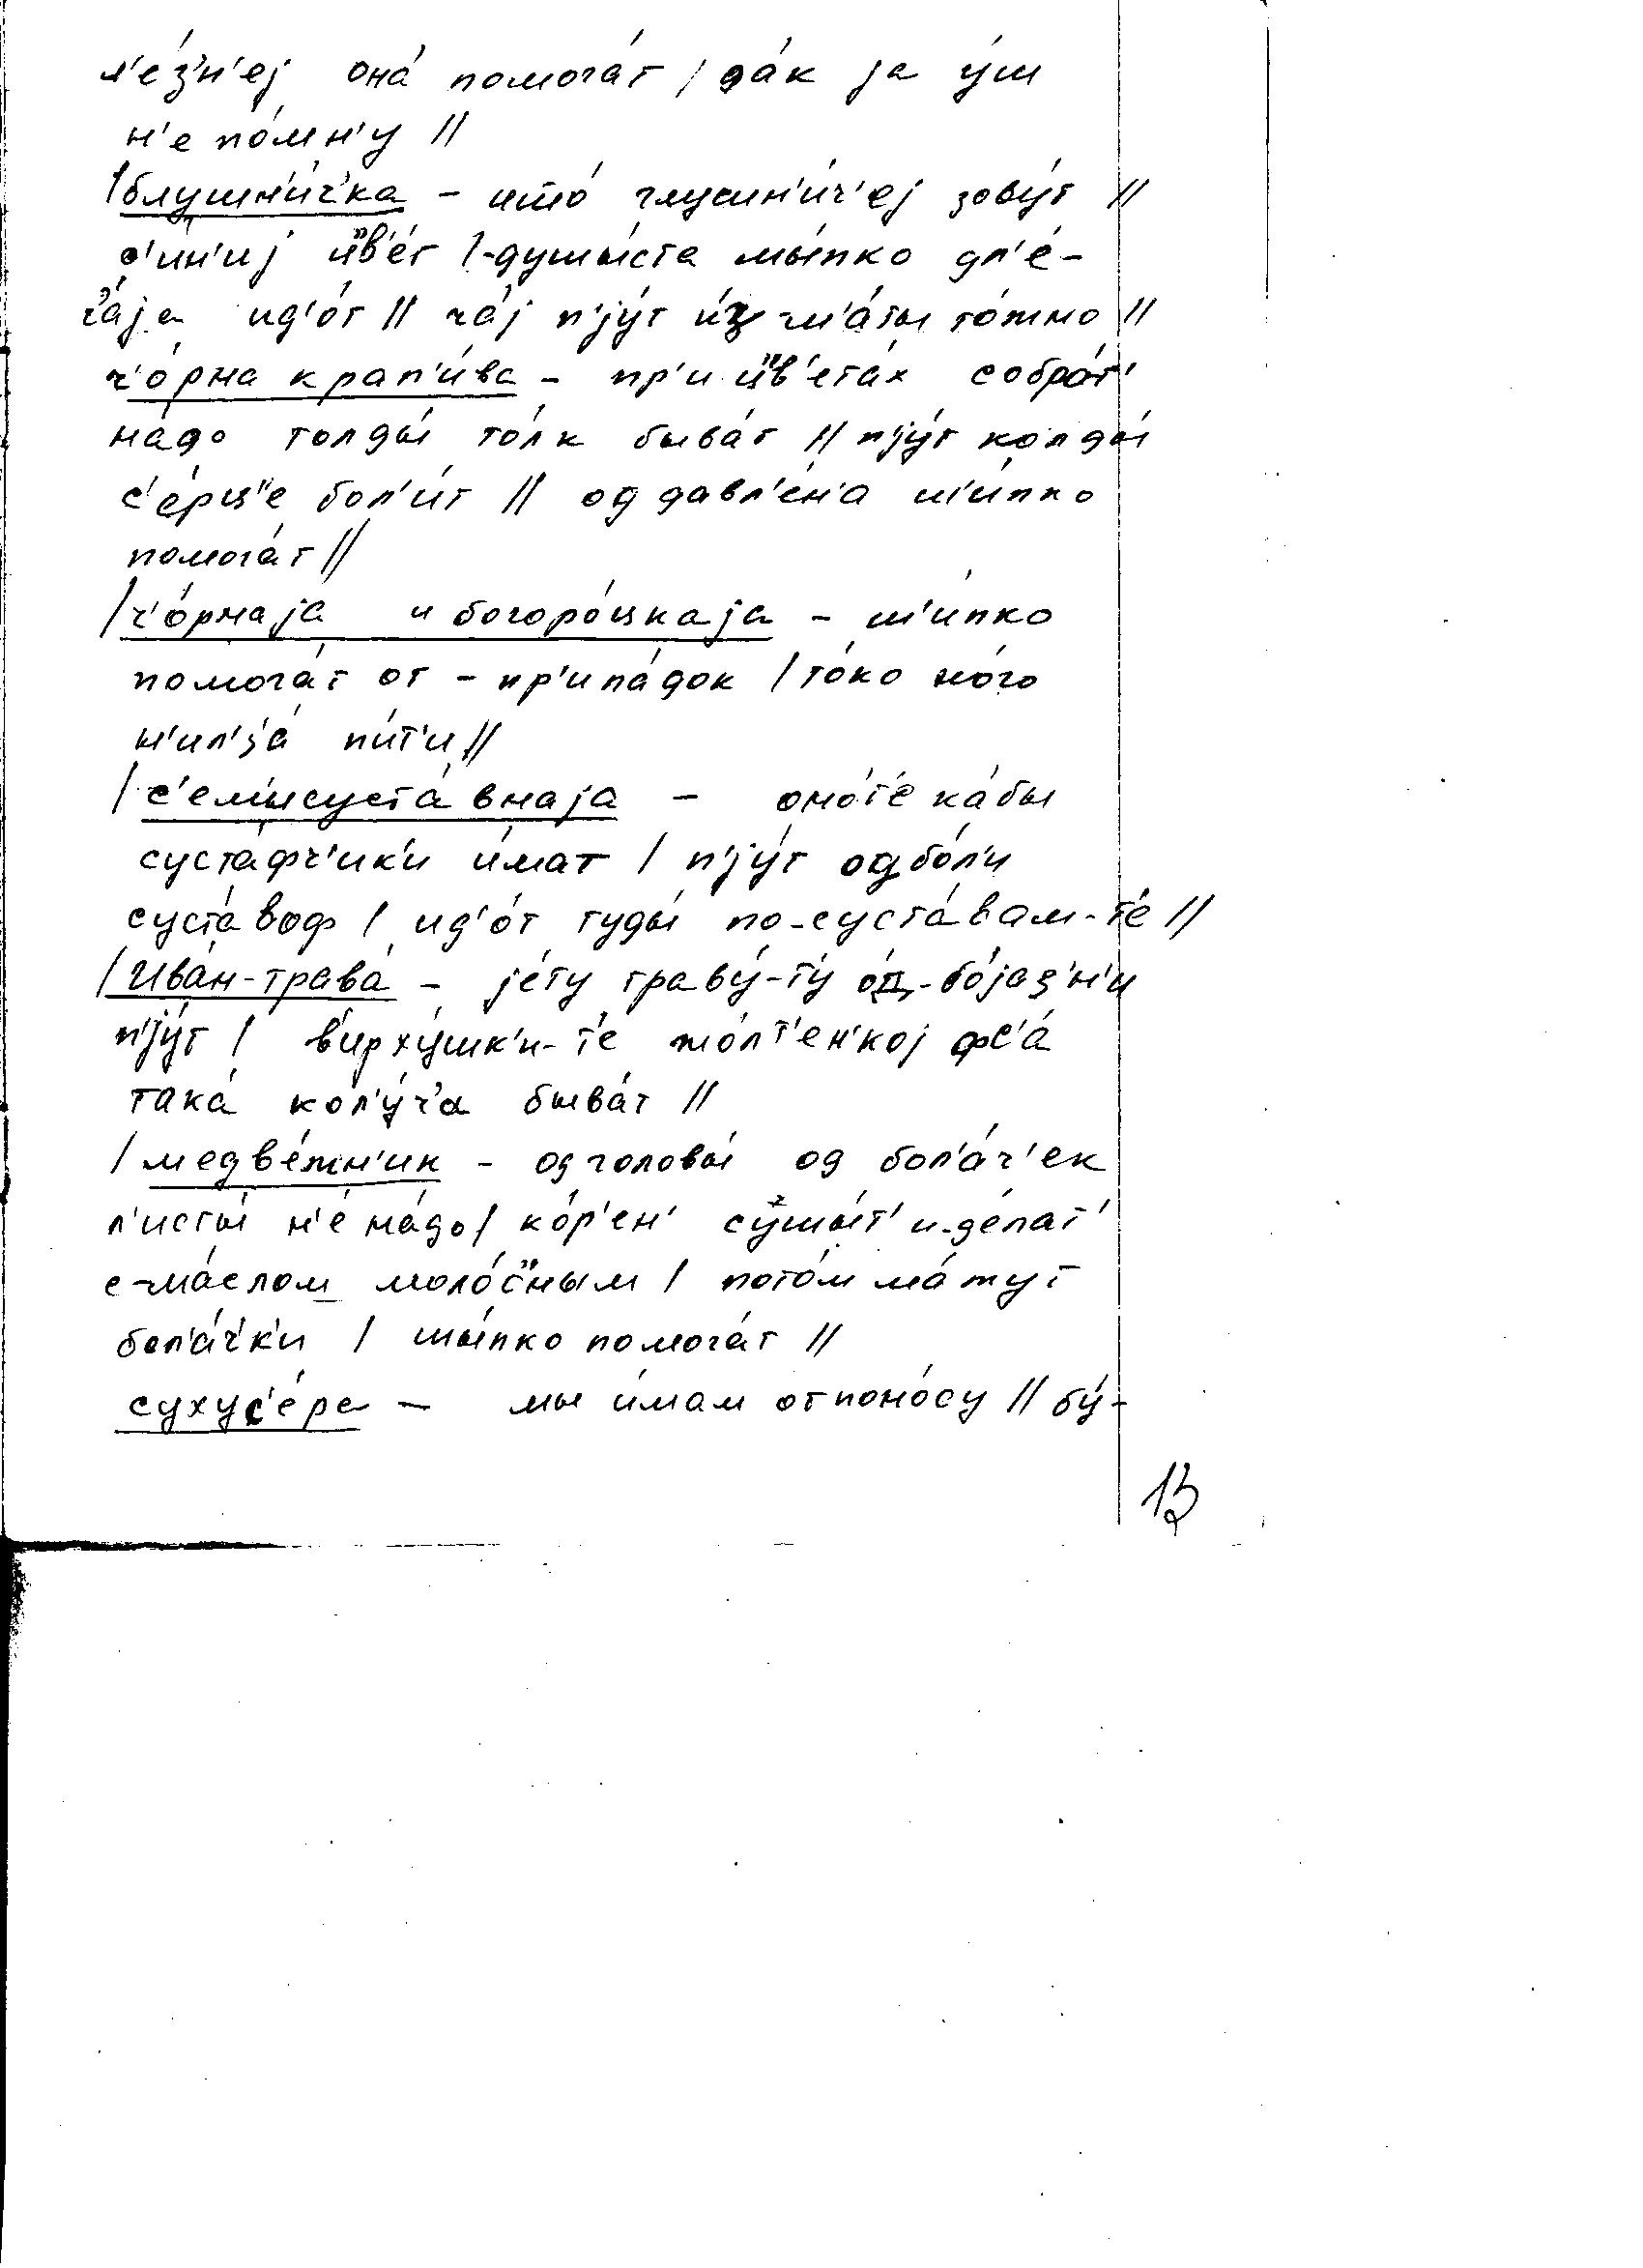 л'е́з'н'еј она́ помога́т / да́к ја у́ш
н'е по́мн'у //
/ блушн'и́ч'ка – што́ глушн'и́ч'еј зову́т //
с'и́н'иј ц"в'е́т /-душы́ста шы́пко дл'е́-
ч'а́ја ид'о́т // ча́ј п'ју́т из-м'а́ты то́жно //
ч'о́рна крап'и́ва – пр'и ц"в'ета́х собра́т'
на́до толды́ то́лк быва́т // п'ју́т колды́
с'е́рц"е бол'и́т // од давл'е́н'а ш'и́пко
помога́т //
/ ч'о́рнаја и богоро́цкаја – ш'и́пко
помога́т от – пр'ипа́док / то́ко но́го
н'ил'з'а́ пи́т'и //
/ с'ем'исуста́внаја – оно́-т'е ка́бы
суста́фч'ик'и и́мат / п'ју́т од бо́л'и
суста́воф / ид'о́т туды́ по-суста́вам-т'е //
/ Ива́н-трава́ – је́ту траву́-ту о́д-бо́јаз'н'и
п'ју́т / в'ирху́шк'и-т'е жо́лт'ен'кој фс'а́
така́ кол'у́ч'а быва́т //
/ медве́жн'ик – од головы́ од бол'а́ч'ек
л'исты́ н'е на́до / ко́р'ен' сушы́т' и-де́лат'
с-ма́слом моло́с"ным / пото́м ма́жут
бол'а́ч'к'и / шы́пко помога́т //
сухус'е́ра – мы и́мам от поно́су // бу́-
13